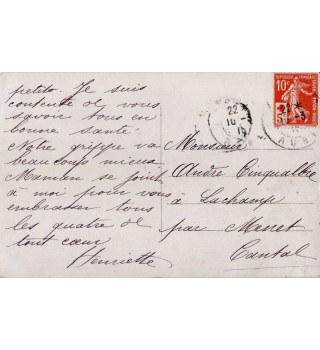 petits. Je suis
contente de vous
savoir tous en
bonne santé.
Notre grippe va
beaucoup mieux
Maman se joint
à moi pour vous
embrasser tous
les quatre de
tout cœur
Henriette
Monsieur
André Cinqualbre
à Lachamp
par Manet
Cantal
22
16 - 3
15
REPUBLIQUE FRANÇAISE
10c